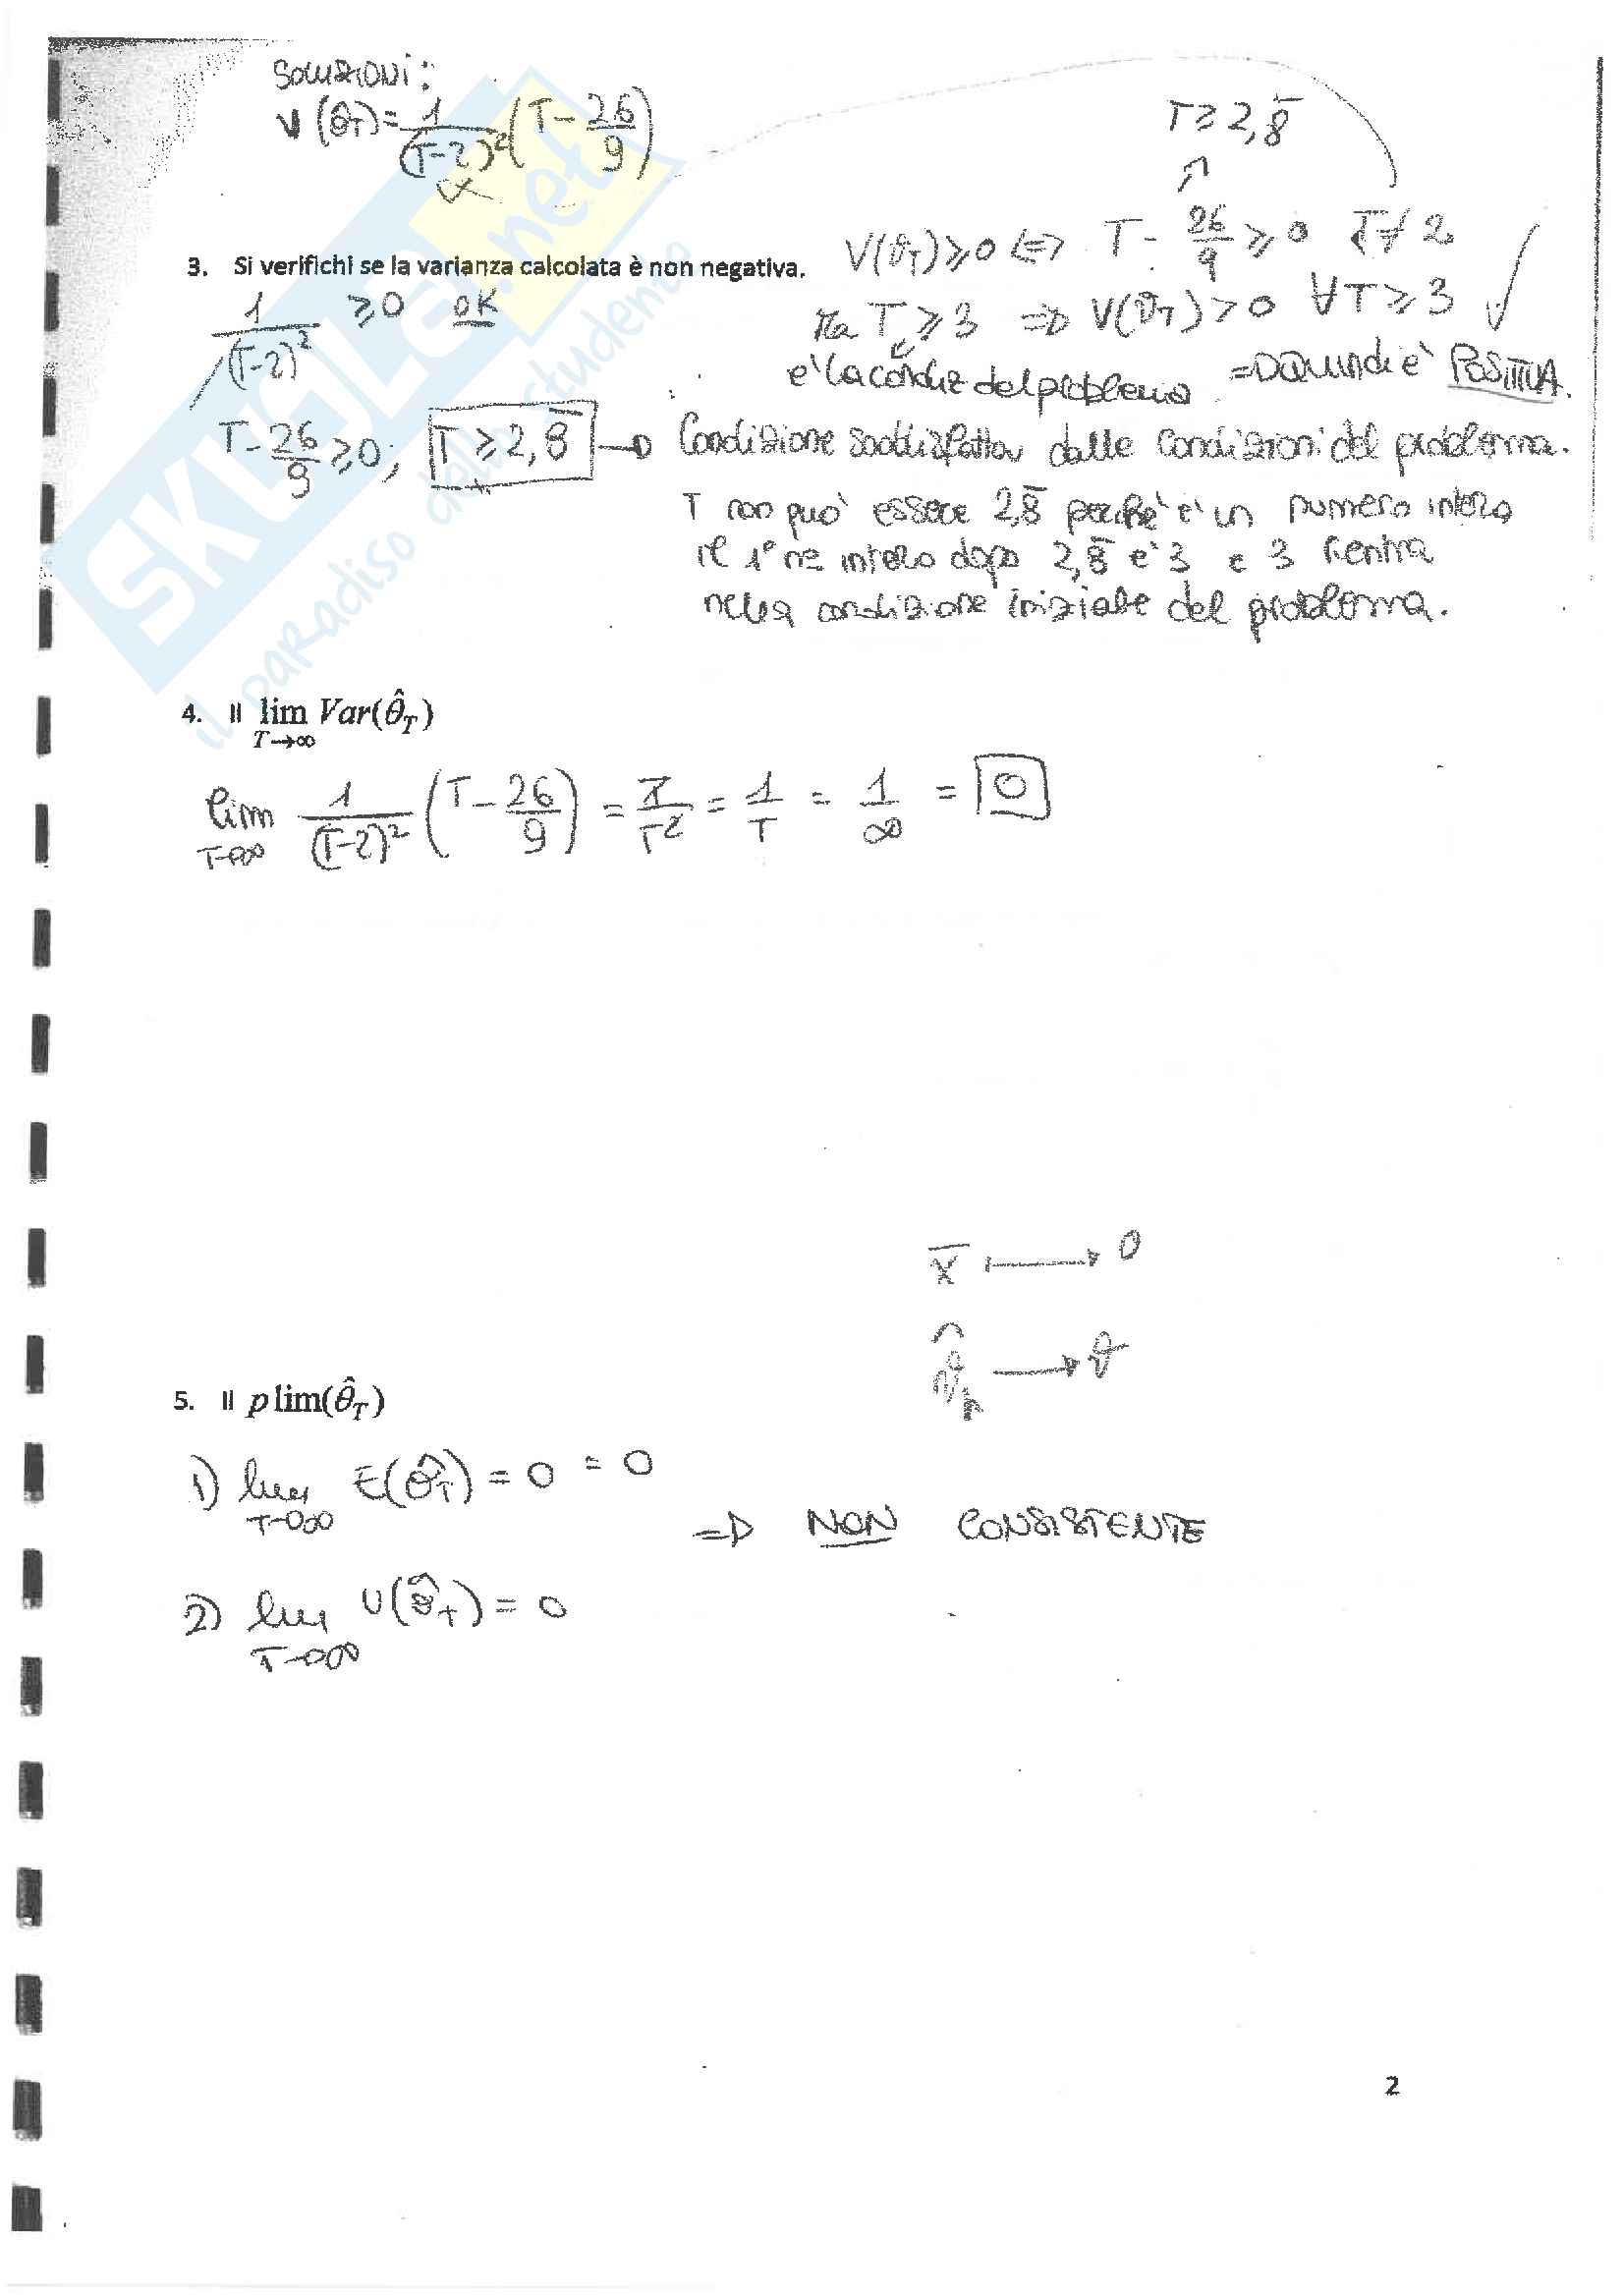 SOLUZIONI:
V(θ̂_T) = 1/(T-2)² (T - 26/9)
T ≥ 2,8̅
3. Si verifichi se la varianza calcolata è non negativa.
V(θ̂_T) ≥ 0 ⇔ T - 26/9 ≥ 0 T ≠ 2
1/(T-2)² ≥ 0 OK
Ma T ≥ 3 ⇒ V(θ̂_T) > 0 ∀T ≥ 3 ✓
è la condiz del problema ⇒ QUINDI è POSITIVA.
T - 26/9 ≥ 0; T ≥ 2,8̅ → Condizione soddisfatta dalle condizioni del problema.
T non può essere 2,8̅ perchè è un numero intero
il 1° n° intero dopo 2,8̅ è 3 e 3 rientra
nella condizione iniziale del problema.
SKUOLA.net
il paradiso dello studente
4. Il lim T→∞ Var(θ̂_T)
lim T→∞ 1/(T-2)² (T - 26/9) = T/T² = 1/T = 1/∞ = 0
X̅ ⟼ θ
→ θ
5. Il p lim(θ̂_T)
1) lim T→∞ E(θ̂_T) = 0 = 0
⇒ NON CONSISTENTE
2) lim T→∞ V(θ̂_T) = 0
2